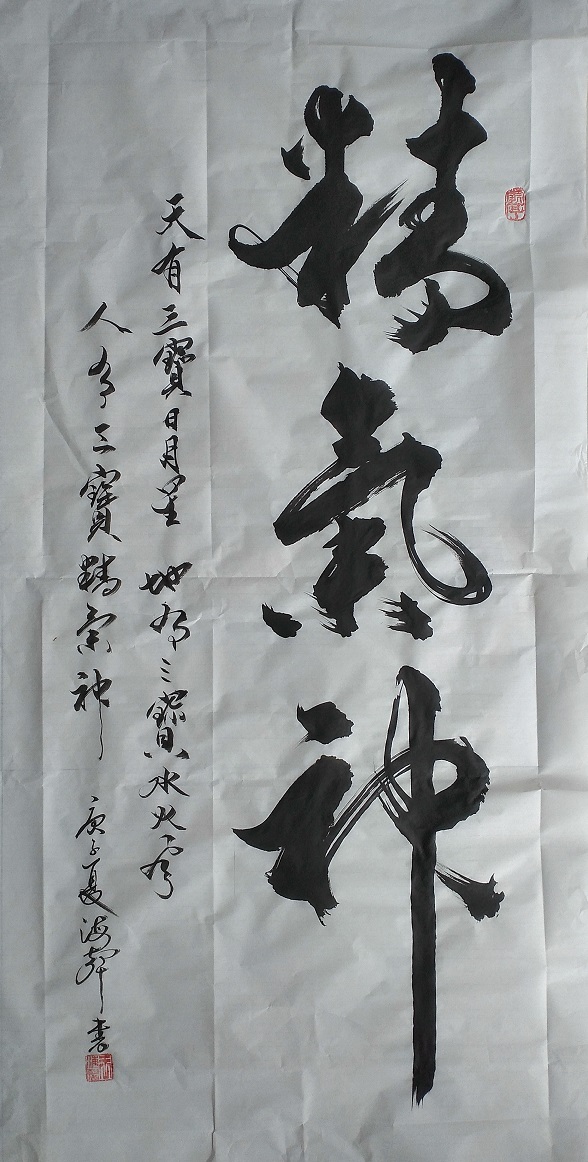 精氣神
天有三寶日月星 地有三寶水火風
人有三寶精氣神 庚子夏海 書